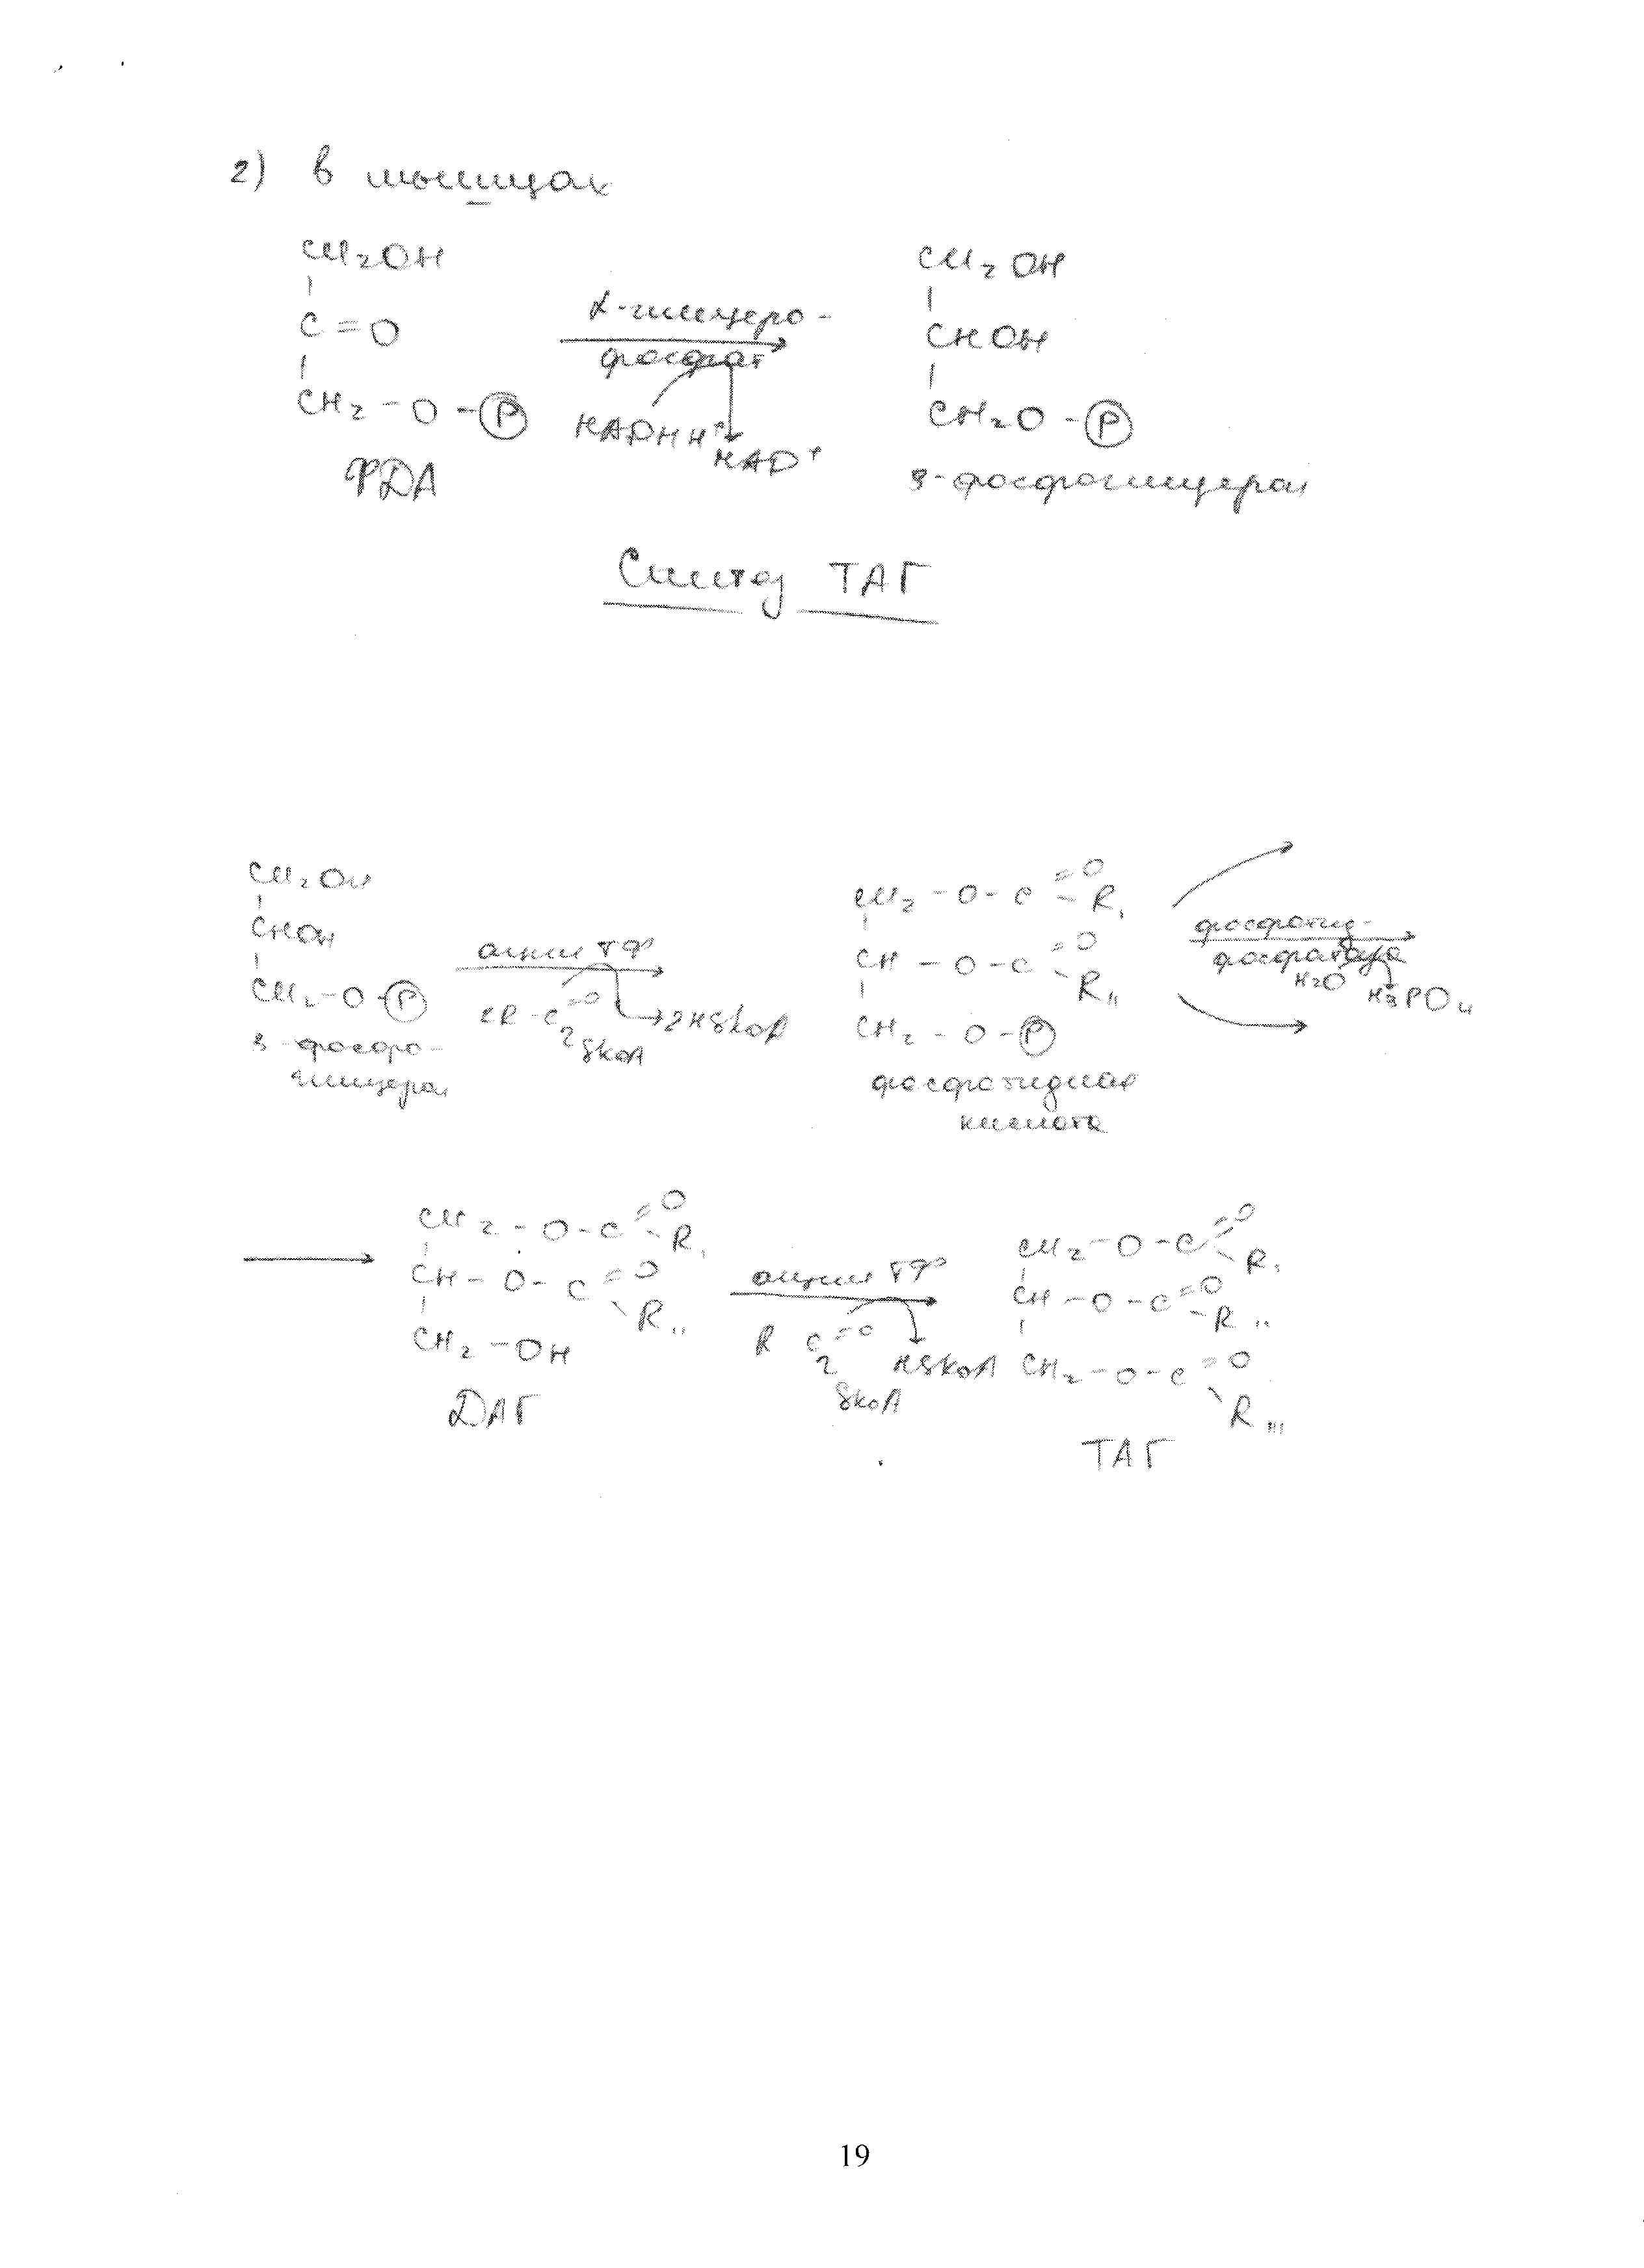 2) в мышцах
CH₂OH
C=O
CH₂-O-Ⓟ
ФДА
α-глицеро-
фосфат
NADHH⁺
NAD⁺
CH₂OH
CHOH
CH₂O-Ⓟ
3-фосфоглицерол
Синтез ТАГ
CH₂OH
CHOH
CH₂-O-Ⓟ
3-фосфо-
глицерол
ацил ТФ
2R-C=O
SKoA
2HSKoA
CH₂-O-C=O
R₁
CH-O-C=O
R₁₁
CH₂-O-Ⓟ
фосфатидная
кислота
фосфатид-
фосфатаза
H₂O
H₃PO₄
CH₂-O-C=O
R₁
CH-O-C=O
R₁₁
CH₂-OH
ДАГ
ацил ТФ
R C=O
SKoA
HSKoA
CH₂-O-C=O
R₁
CH-O-C=O
R₁₁
CH₂-O-C=O
R₁₁₁
ТАГ
19